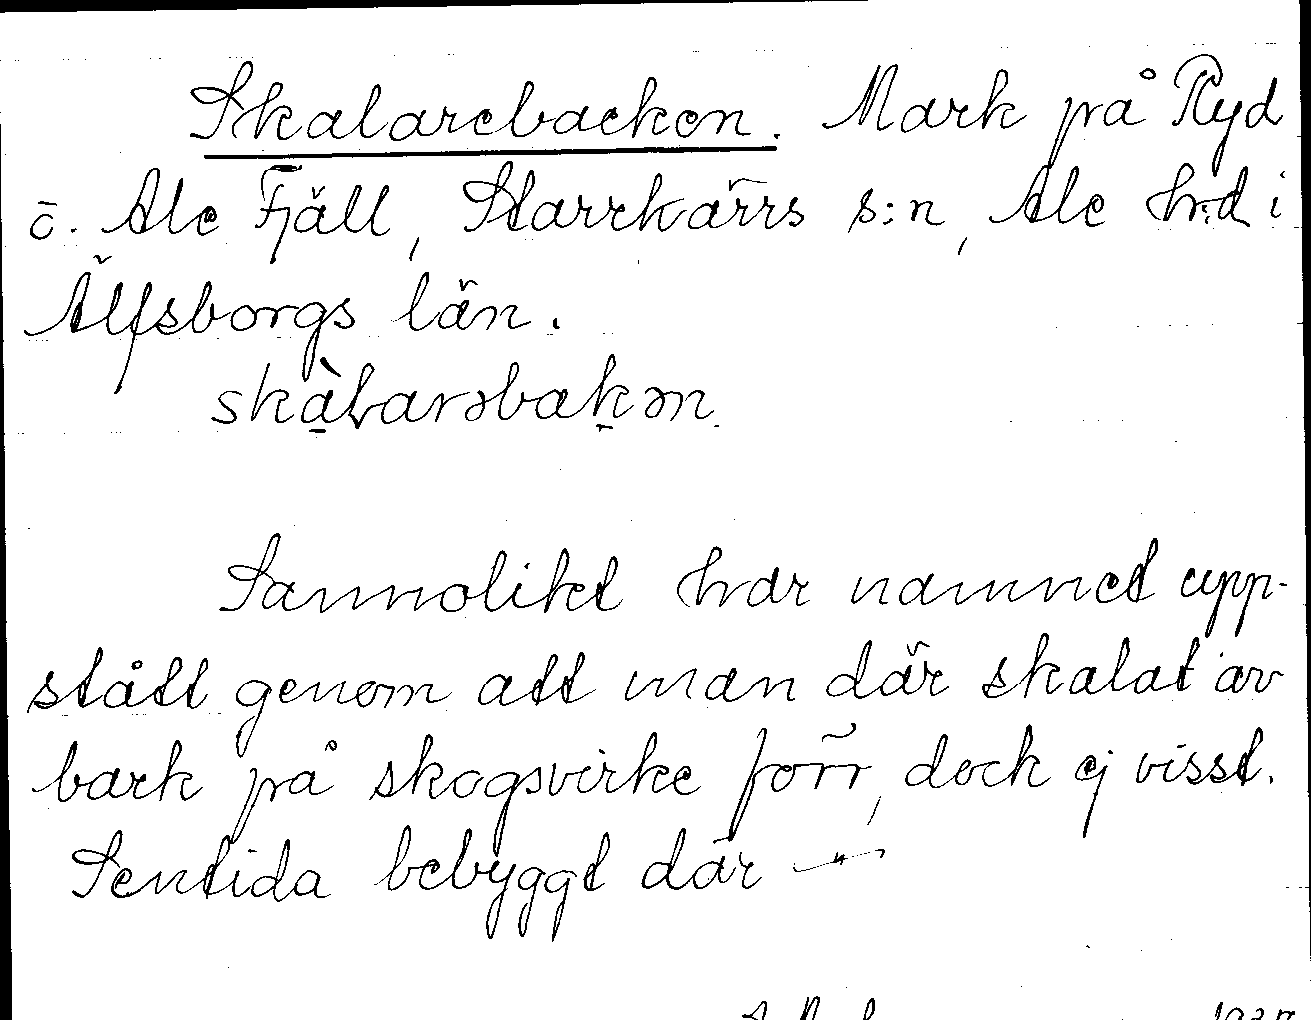 Skalarebacken. Mark på Ryd
o. Ale Fjäll, Starrkärrs s:n, Ale hrd i
Älfsborgs län.
skàlarəbakən
Sannolikt har namnet upp-
stått genom att man där skalat av
bark på skogsvirke förr, dock ej visst.
Sentida bebyggt där –"–